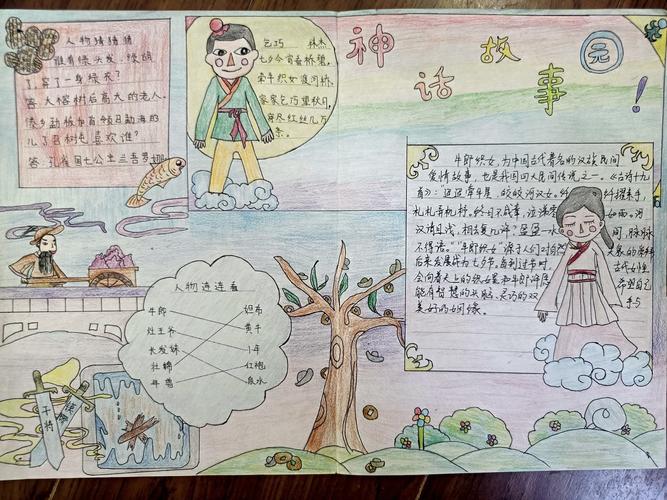 神话故事园!
人物猜猜猜
谁有绿头发,绿胡
了,穿了一身绿衣?
答:大榕树后高大的老人。
傣乡勐板加有领召勐海的
儿了召树屯喜欢谁?
答:孔雀国七公主
乞巧 林杰
七夕今宵看桥碧,
牵牛织女渡河桥。
家家乞巧望秋月,
穿尽红丝几万
条。
牛郎织女,为中国古代著名的汉族民间
爱情故事,也是我国四大民间传说之一。《古诗十九
首》:"迢迢牵牛星,皎皎河汉女。纤纤擢素手,
札札弄机杼。终日不成章,泣涕零如雨。河
汉清且浅,相去复几许?盈盈一水间,脉脉
不得语。""牛郎织女"源于人们对自然天象的崇拜
后来发展成为七夕节。每到过节时,古代女性
会向着天上的织女星和牛郎星 希望自己
能有智慧的头脑、灵巧的双手与
美好的姻缘。
人物连连看
牛郎 织布
灶王爷 黄牛
长发妹 1年
牡蛎 红袍
年兽 泉水
干将
莫邪